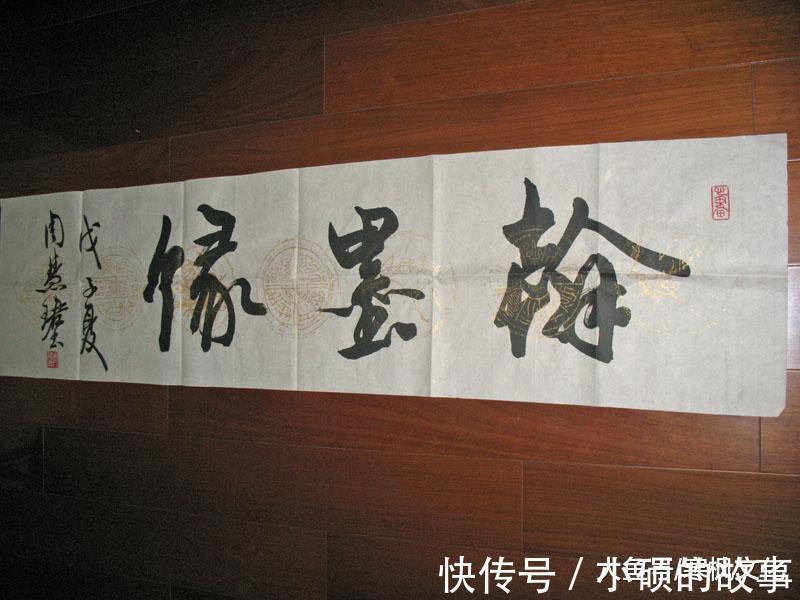 翰墨缘
戊子夏
周慧珺
快传号 / 小硕的故事